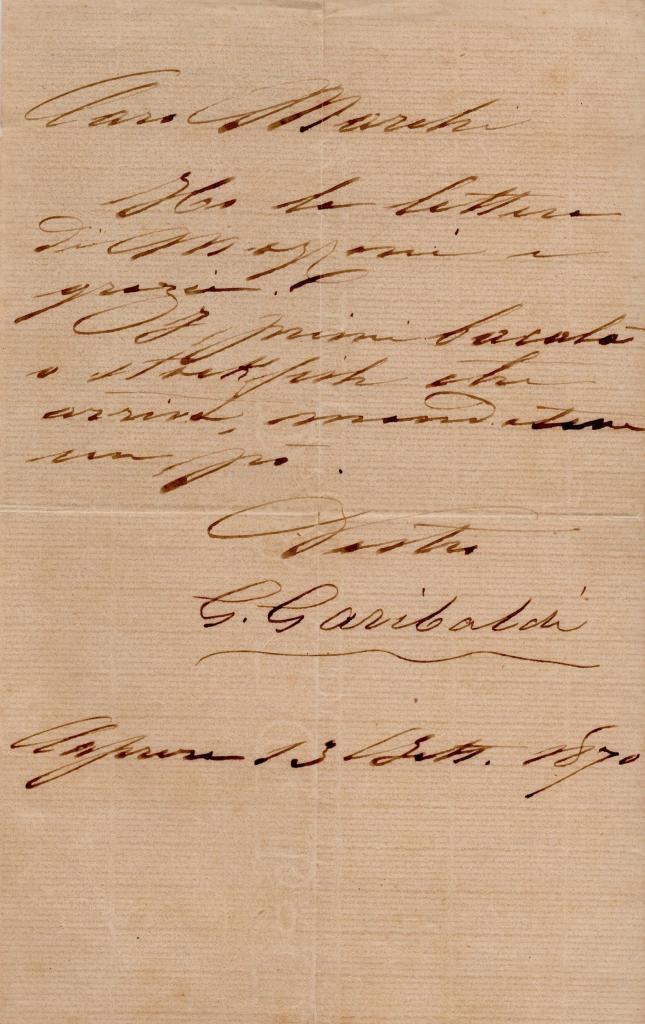 Caro Marchi
Ho la lettera
di Mazzoni e
grazie.
I primi bacalà
o stockfish che
arriva, mandatene
un pò.
Vostro
G. Garibaldi
Caprera 13 Sett. 1870